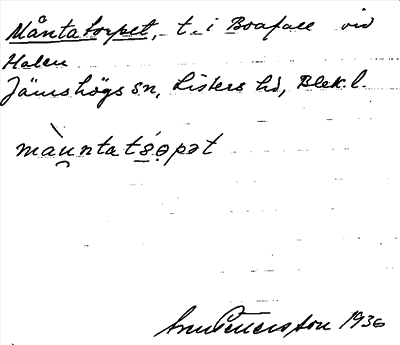 Måntatorpet, t. i Boafall vid
Halen
Jämshögs sn, Listers hd, Blek. l.
màu̯ntats̤ó̤pət
Pettersson 1936